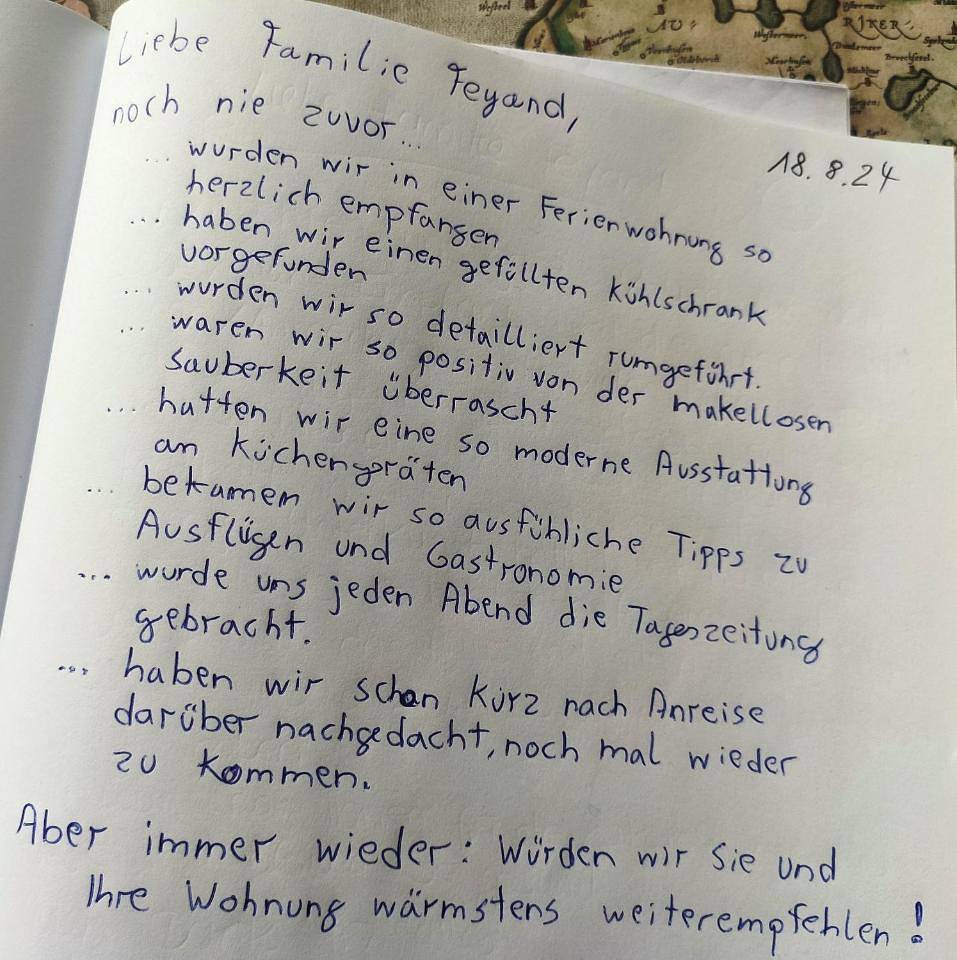 Liebe Familie Feyand,
18.8.24
noch nie zuvor...
... wurden wir in einer Ferienwohnung so
herzlich empfangen
... haben wir einen gefüllten Kühlschrank
vorgefunden
... wurden wir so detailliert rumgeführt.
... waren wir so positiv von der makellosen
Sauberkeit überrascht
... hatten wir eine so moderne Ausstattung
an Küchengräten
... bekamen wir so ausfühliche Tipps zu
Ausflügen und Gastronomie
... wurde uns jeden Abend die Tageszeitung
gebracht.
... haben wir schon kurz nach Anreise
darüber nachgedacht, noch mal wieder
zu kommen.
Aber immer wieder: Würden wir Sie und
Ihre Wohnung wärmstens weiterempfehlen!
RIKER